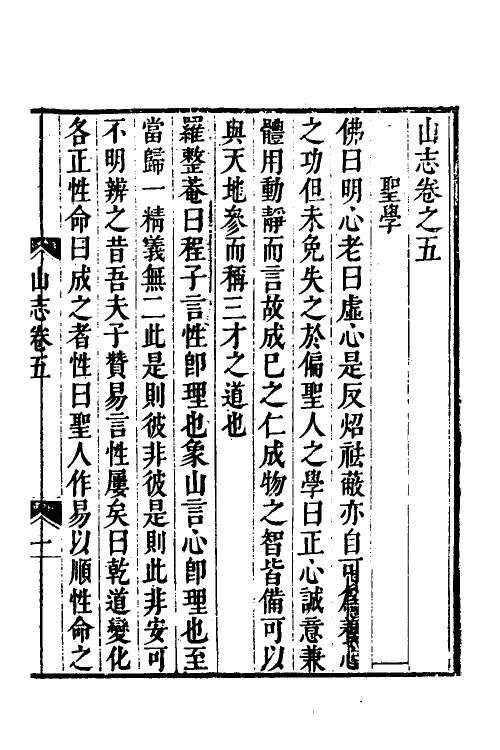 山志卷之五
聖學
佛曰明心老曰虛心是反炤祛蔽亦自可爲養心
之功但未免失之於偏聖人之學曰正心誠意兼
體用動靜而言故成巳之仁成物之智皆備可以
與天地參而稱三才之道也
羅整菴曰程子言性卽理也象山言心卽理也至
當歸一精義無二此是則彼非彼是則此非安可
不明辨之昔吾夫子贊易言性屢矣曰乾道變化
各正性命曰成之者性曰聖人作易以順性命之
山志卷五
一